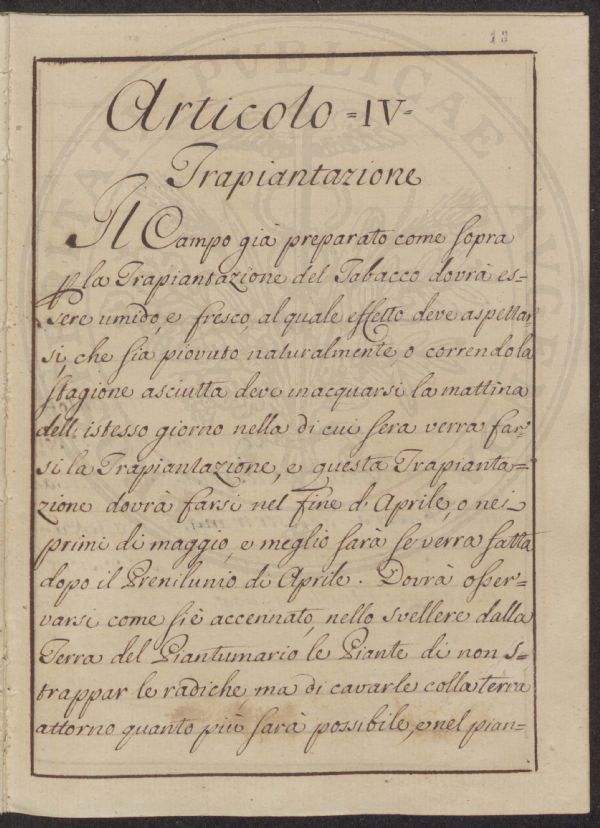 18
Articolo =IV=
Trapiantazione
Il Campo già preparato come sopra
p la Trapiantazione del Tabacco dovrà es=
sere umido, e fresco, al quale effetto deve aspettar
si, che sia piovuto naturalmente, o correndo la
stagione asciutta deve inacquarsi la mattina
dell' istesso giorno nella di cui sera verra far
si la Trapiantazione, e questa Trapianta=
zione dovrà farsi nel fine d' Aprile, o nei
primi di maggio, e meglio sarà se verra fatta
dopo il Plenilunio di Aprile. Dovrà osser=
varsi come si è accennato, nello svellere dalla
Terra del Piantumario le Piante di non s=
trappar le radiche, ma di cavarle colla terra
attorno quanto più sarà possibile, e nel pian=